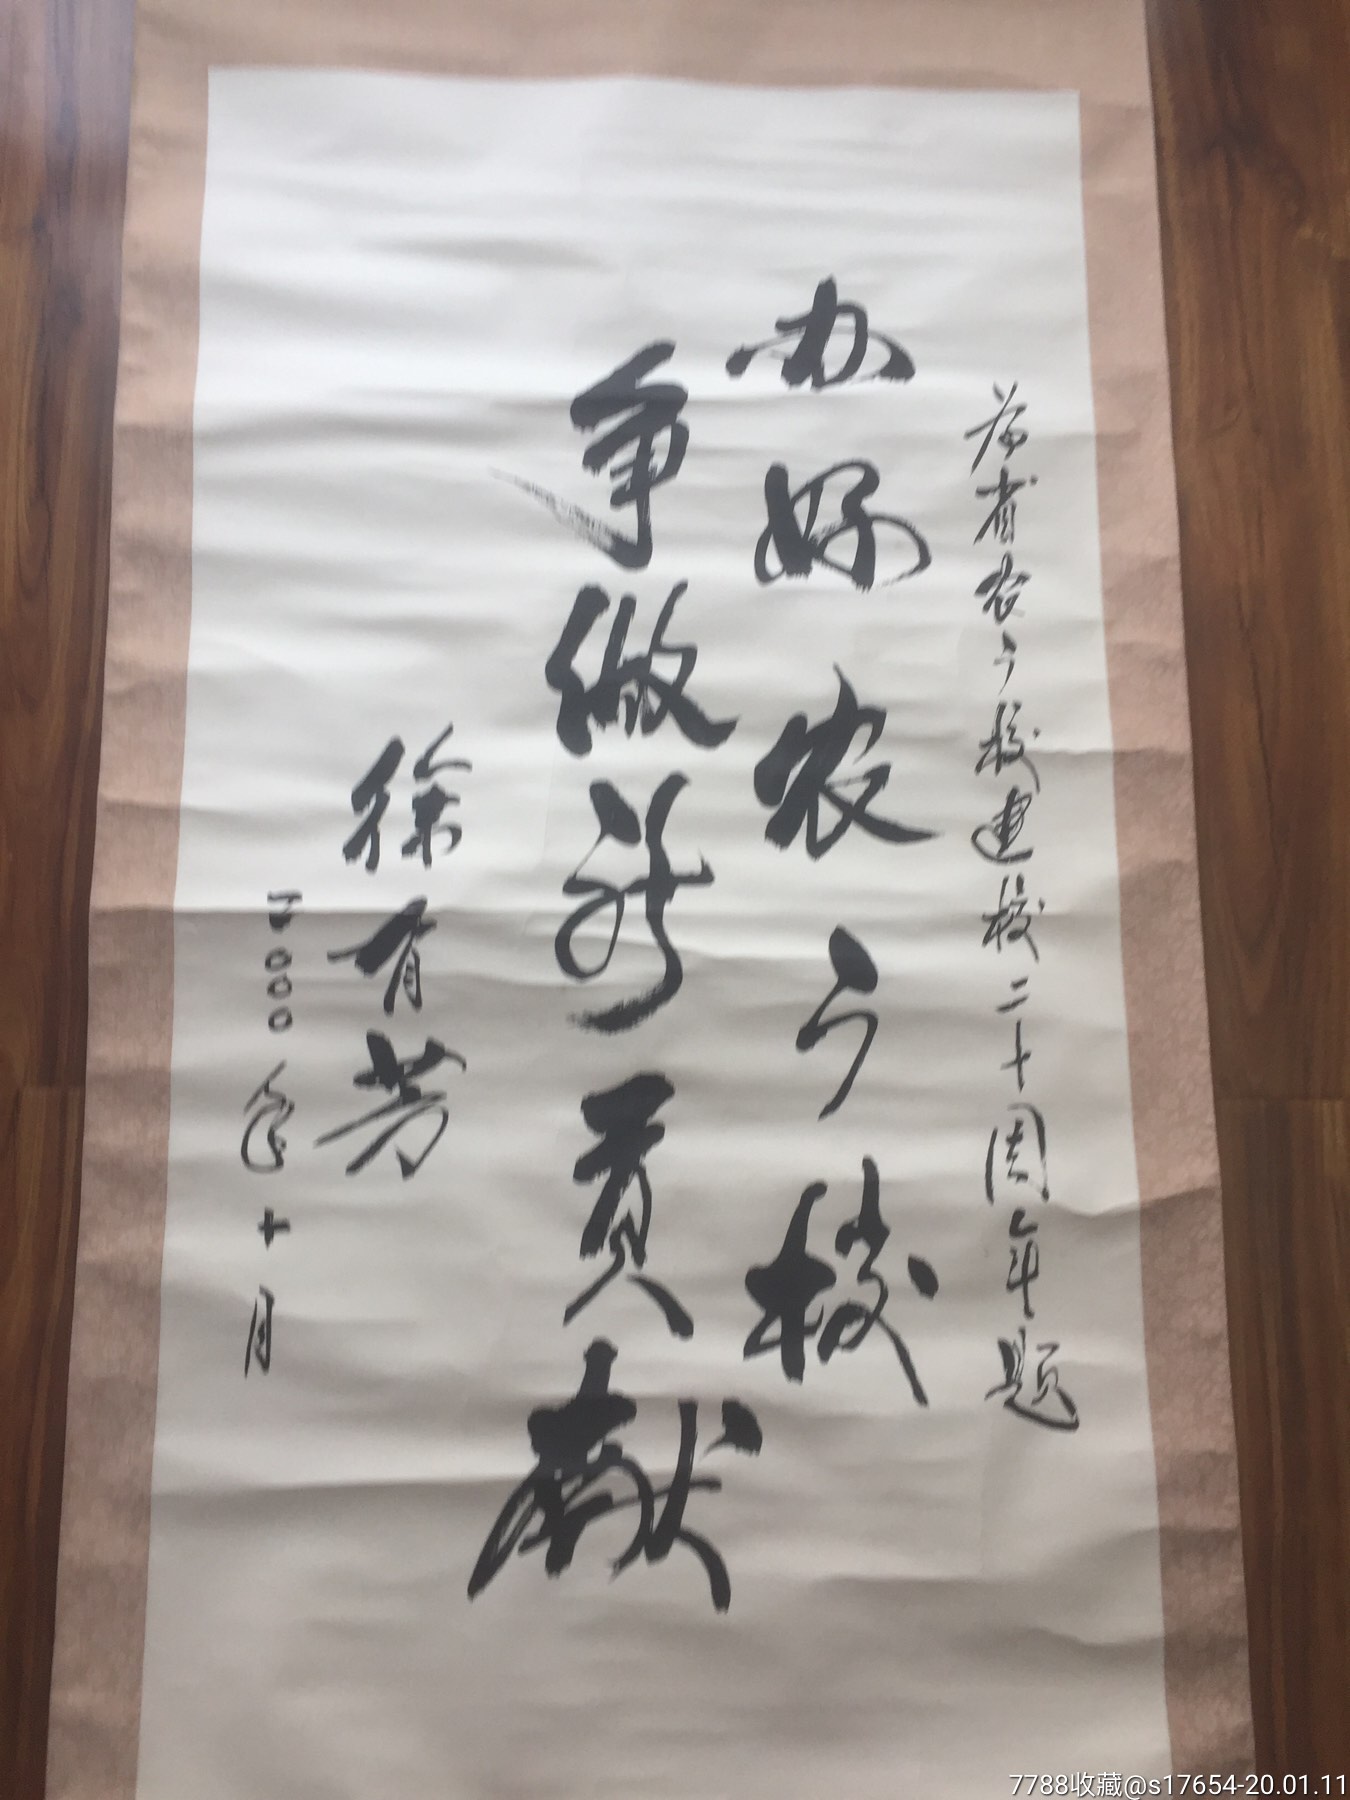 为省农广校建校二十周年题
办好农广校
争做新贡献
徐有芳
二000年十月
7788收藏@s17654-20.01.11